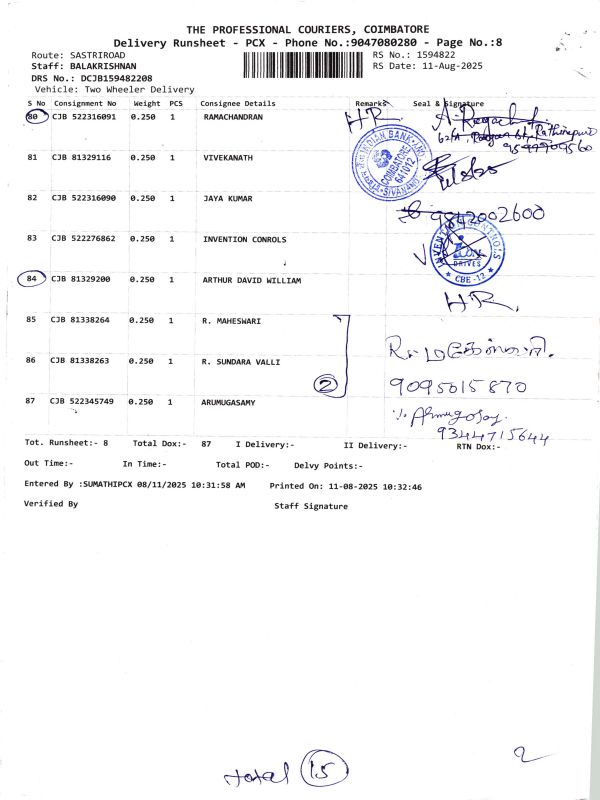 THE PROFESSIONAL COURIERS, COIMBATORE
Delivery Runsheet - PCX - Phone No.:9047080280 - Page No.:8
Route: SASTRIROAD RS No.: 1594822
Staff: BALAKRISHNAN RS Date: 11-Aug-2025
DRS No.: DCJB159482208
Vehicle: Two Wheeler Delivery
S No Consignment No Weight PCS Consignee Details Remarks Seal & Signature
80 CJB 522316091 0.250 1 RAMACHANDRAN HR
INDIAN BANK
COIMBATORE
641012
81 CJB 81329116 0.250 1 VIVEKANATH
82 CJB 522316090 0.250 1 JAYA KUMAR 9842002600
83 CJB 522276862 0.250 1 INVENTION CONROLS
DRIVES
CBE-12
84 CJB 81329200 0.250 1 ARTHUR DAVID WILLIAM HR
85 CJB 81338264 0.250 1 R. MAHESWARI R. மகேஸ்வரி.
86 CJB 81338263 0.250 1 R. SUNDARA VALLI 9095015870
2
87 CJB 522345749 0.250 1 ARUMUGASAMY
9344715644
Tot. Runsheet:- 8 Total Dox:- 87 I Delivery:- II Delivery:- RTN Dox:-
Out Time:- In Time:- Total POD:- Delvy Points:-
Entered By :SUMATHIPCX 08/11/2025 10:31:58 AM Printed On: 11-08-2025 10:32:46
Verified By Staff Signature
total 15
2